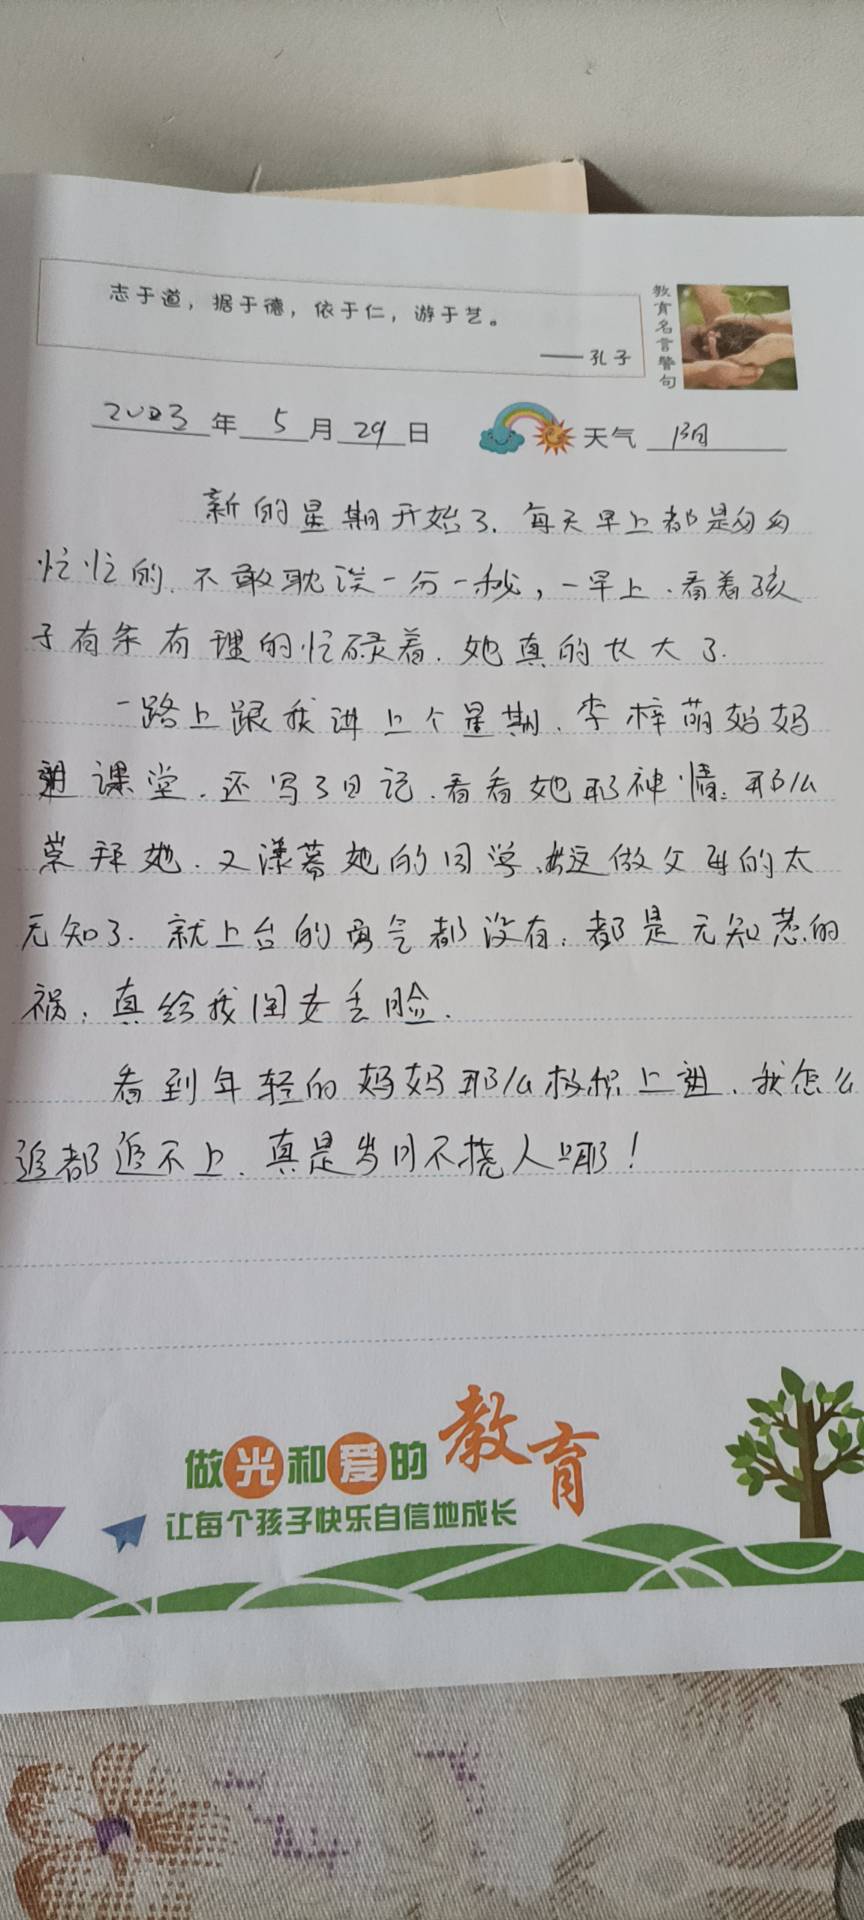 志于道，据于德，依于仁，游于艺。
——孔子
教育名言警句
2023年5月29日 天气 阴
新的星期开始了.每天早上都是匆匆
忙忙的.不敢耽误一分一秒，一早上.看着孩
子有条有理的忙碌着.她真的长大了.
一路上跟我讲上个星期.李梓萌妈妈
进课堂.还写了日记.看着她那神情.那么
崇拜她.又漾慕她的同学.这做父母的太
无知了.就上台的勇气都没有.都是无知惹的
祸.真给我闺女丢脸.
看到年轻的妈妈那么积极上进.我怎么
追都追不上.真是岁月不挠人哪！
做光和爱的教育
让每个孩子快乐自信地成长